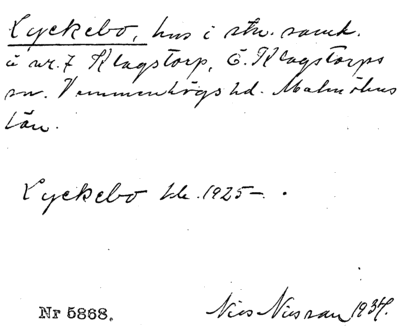 Lyckebo, hus i stn. samh.
å nr. 7 Klagstorp, Ö. Klagstorps
sn. Vemmenhögs hd. Malmöhus
län.
Lyckebo 1925–.
Nr 5868.
Nils Nilsson 1937.